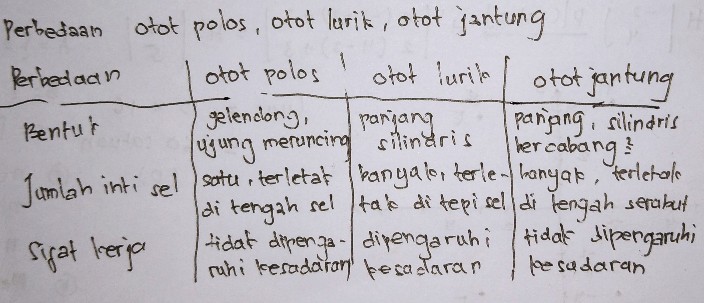 Perbedaan otot polos, otot lurik, otot jantung
Perbedaan otot polos otot lurik otot jantung
Bentuk gelendong, panjang panjang, silindris
ujung meruncing silindris bercabang2
Jumlah inti sel satu, terletak banyak, terle- banyak, terletak
di tengah sel tak di tepi sel di tengah serabut
Sifat kerja tidak dipenga- dipengaruhi tidak dipengaruhi
ruhi kesadaran kesadaran kesadaran